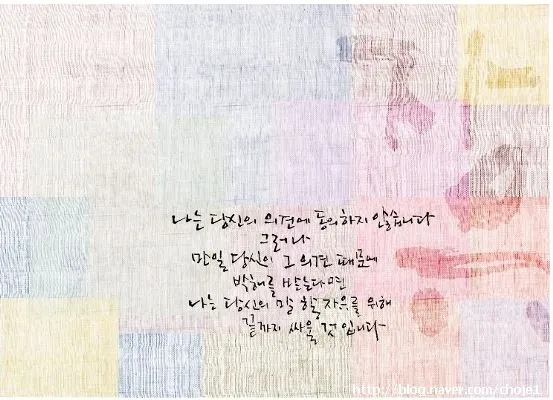 나는 당신의 의견에 동의하지 않습니다
그러나
만일 당신이 그 의견 때문에
박해를 받는다면
나는 당신의 말 할 자유를 위해
끝까지 싸울 것 입니다
http://blog.naver.com/choje1